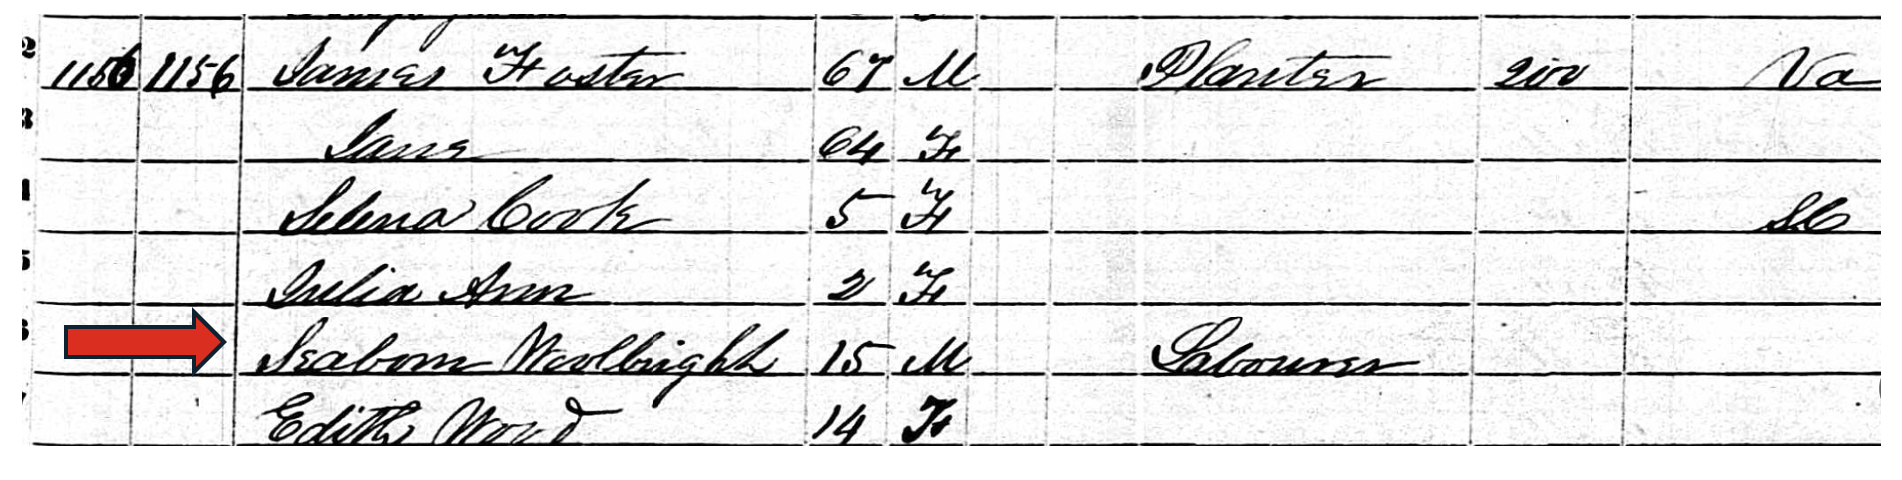 2 1156 1156 James Foster 67 M Planter 200 Va
3 Jane 64 F
4 Selena Cook 5 F SC
5 Julia Ann 2 F
6 Seaborn Woolbright 15 M Labourer
Edith Wood 14 F